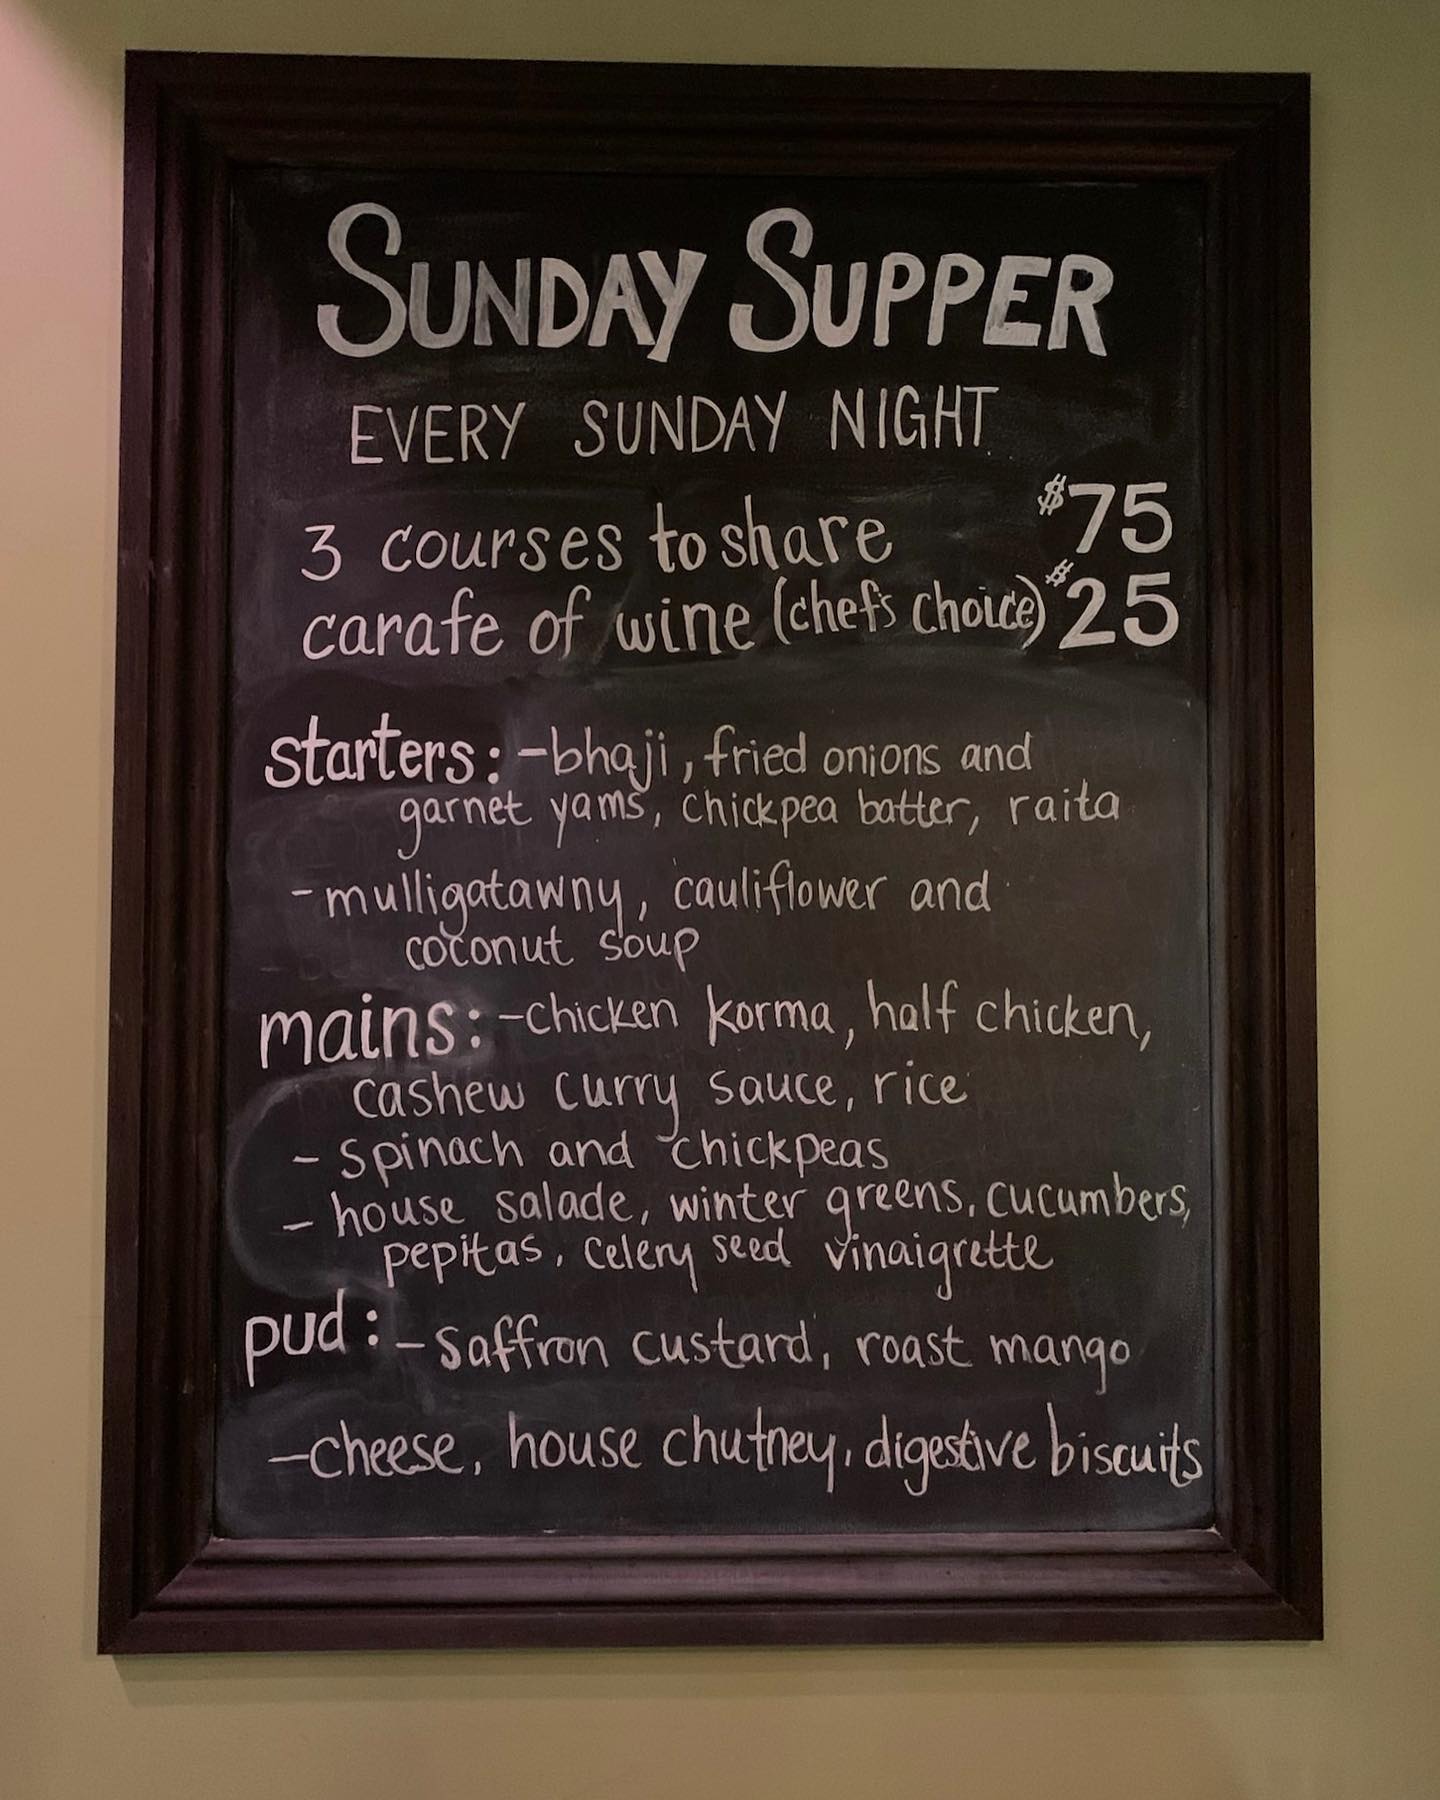 SUNDAY SUPPER
EVERY SUNDAY NIGHT
3 courses to share $75
carafe of wine (chef's choice) $25
starters: -bhaji, fried onions and
garnet yams, chickpea batter, raita
-mulligatawny, cauliflower and
coconut soup
mains: -chicken korma, half chicken,
cashew curry sauce, rice
- spinach and chickpeas
- house salade, winter greens, cucumbers,
pepitas, celery seed vinaigrette
pud: - saffron custard, roast mango
-cheese, house chutney, digestive biscuits